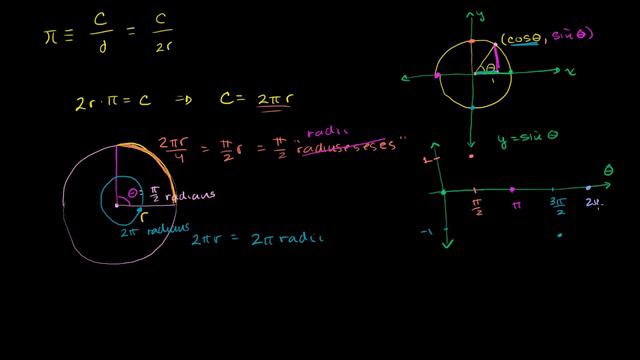 π ≡ C/d = C/2r
2r·π = C ⇒ C = 2πr
2πr/4 = π/2 r = π/2 "radiuseseses"
radii
θ = π/2 radians
r
2π radians
2πr = 2π radii
y
(cosθ, sin θ)
θ
1
x
y = sin θ
1
θ
π/2 π 3π/2 2π
-1